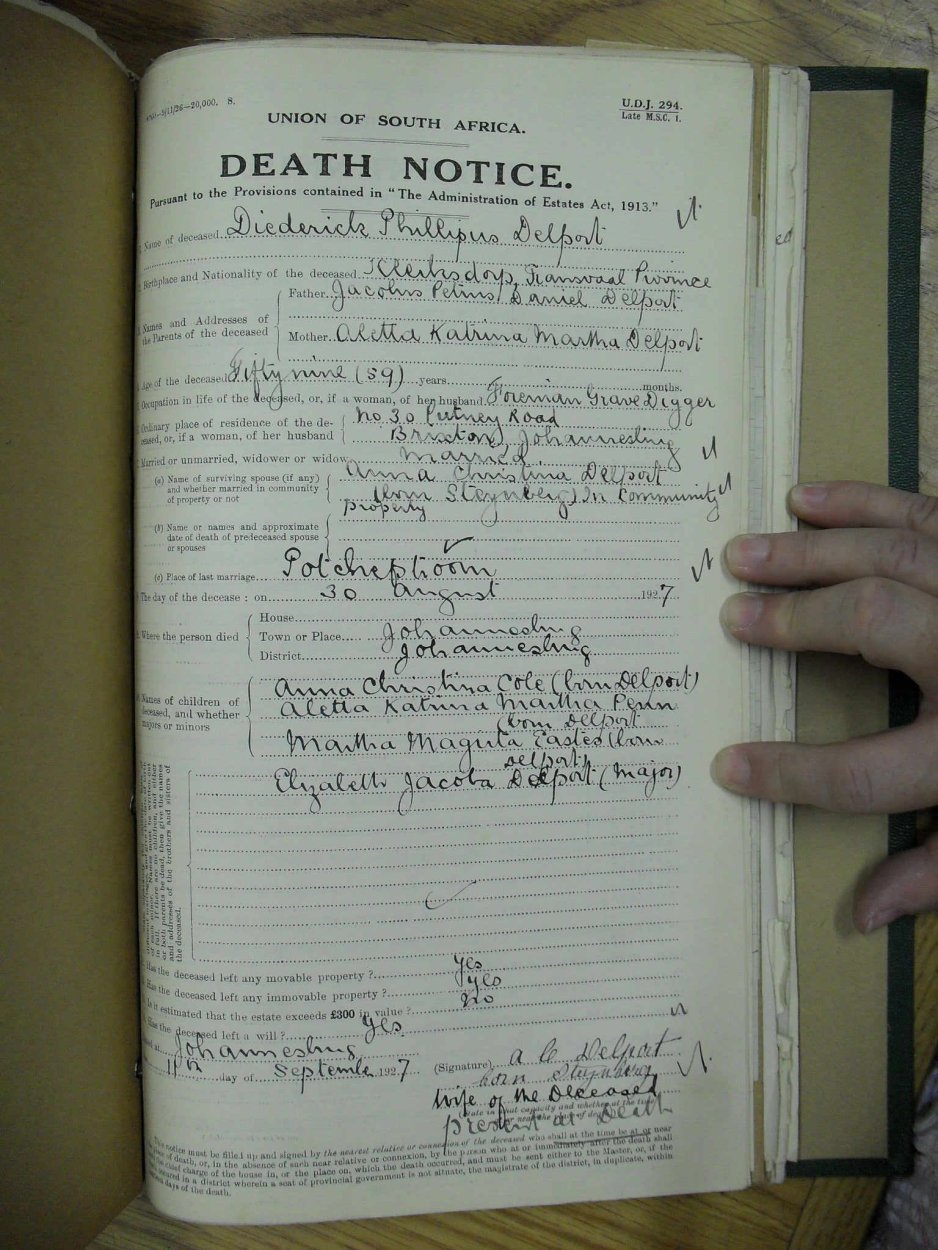 —5/11/26—20,000. S.
U.D.J. 294.
Late M.S.C. 1.
UNION OF SOUTH AFRICA.
DEATH NOTICE.
Pursuant to the Provisions contained in "The Administration of Estates Act, 1913."
Name of deceased Diederick Phillipus Delport
Birthplace and Nationality of the deceased Klerksdorp, Transvaal Province
Names and Addresses of the Parents of the deceased
Father Jacobus Petrus Daniel Delport
Mother Aletta Katrina Martha Delport
Age of the deceased Fifty nine (59) years months.
Occupation in life of the deceased, or, if a woman, of her husband Foreman Grave Digger
Ordinary place of residence of the de-
ceased, or, if a woman, of her husband
No 30 Putney Road
Brixton, Johannesburg
Married or unmarried, widower or widow married
(a) Name of surviving spouse (if any)
and whether married in community
of property or not
Anna Christina Delport
(born Steynberg) In Community
property
(b) Name or names and approximate
date of death of predeceased spouse
or spouses
(c) Place of last marriage Potchefstroom
The day of the decease : on 30 August 1927
Where the person died
House
Town or Place Johannesburg
District Johannesburg
Names of children of
deceased, and whether
majors or minors
Anna Christina Cole (born Delport)
Aletta Katrina Martha Penn
(born Delport
Martha Magrita Eastes (born
Delport)
Elizabeth Jacoba Delport (Major)
of each minor. Names must be written out
in full. If there are no children, and either
or both parents be dead, then give the names
and addresses of the brothers and sisters of
the deceased.
Has the deceased left any movable property ? Yes
Has the deceased left any immovable property ? yes
Is it estimated that the estate exceeds £300 in value ? No
Has the deceased left a will ? Yes
at Johannesburg
11th day of September 1927
(Signature) A C Delport
born Steynberg
Wife of the Deceased
(State in what capacity and whether at the time
or near the place of death)
present at Death
This notice must be filled up and signed by the nearest relative or connexion of the deceased who shall at the time be at or near
place of death, or, in the absence of such near relative or connexion, by the person who at or immediately after the death shall
the chief charge of the house in, or the place on, which the death occurred, and must be sent either to the Master, or, if the
occurred in a district wherein a seat of provincial government is not situate, the magistrate of the district, in duplicate, within
days of the death.